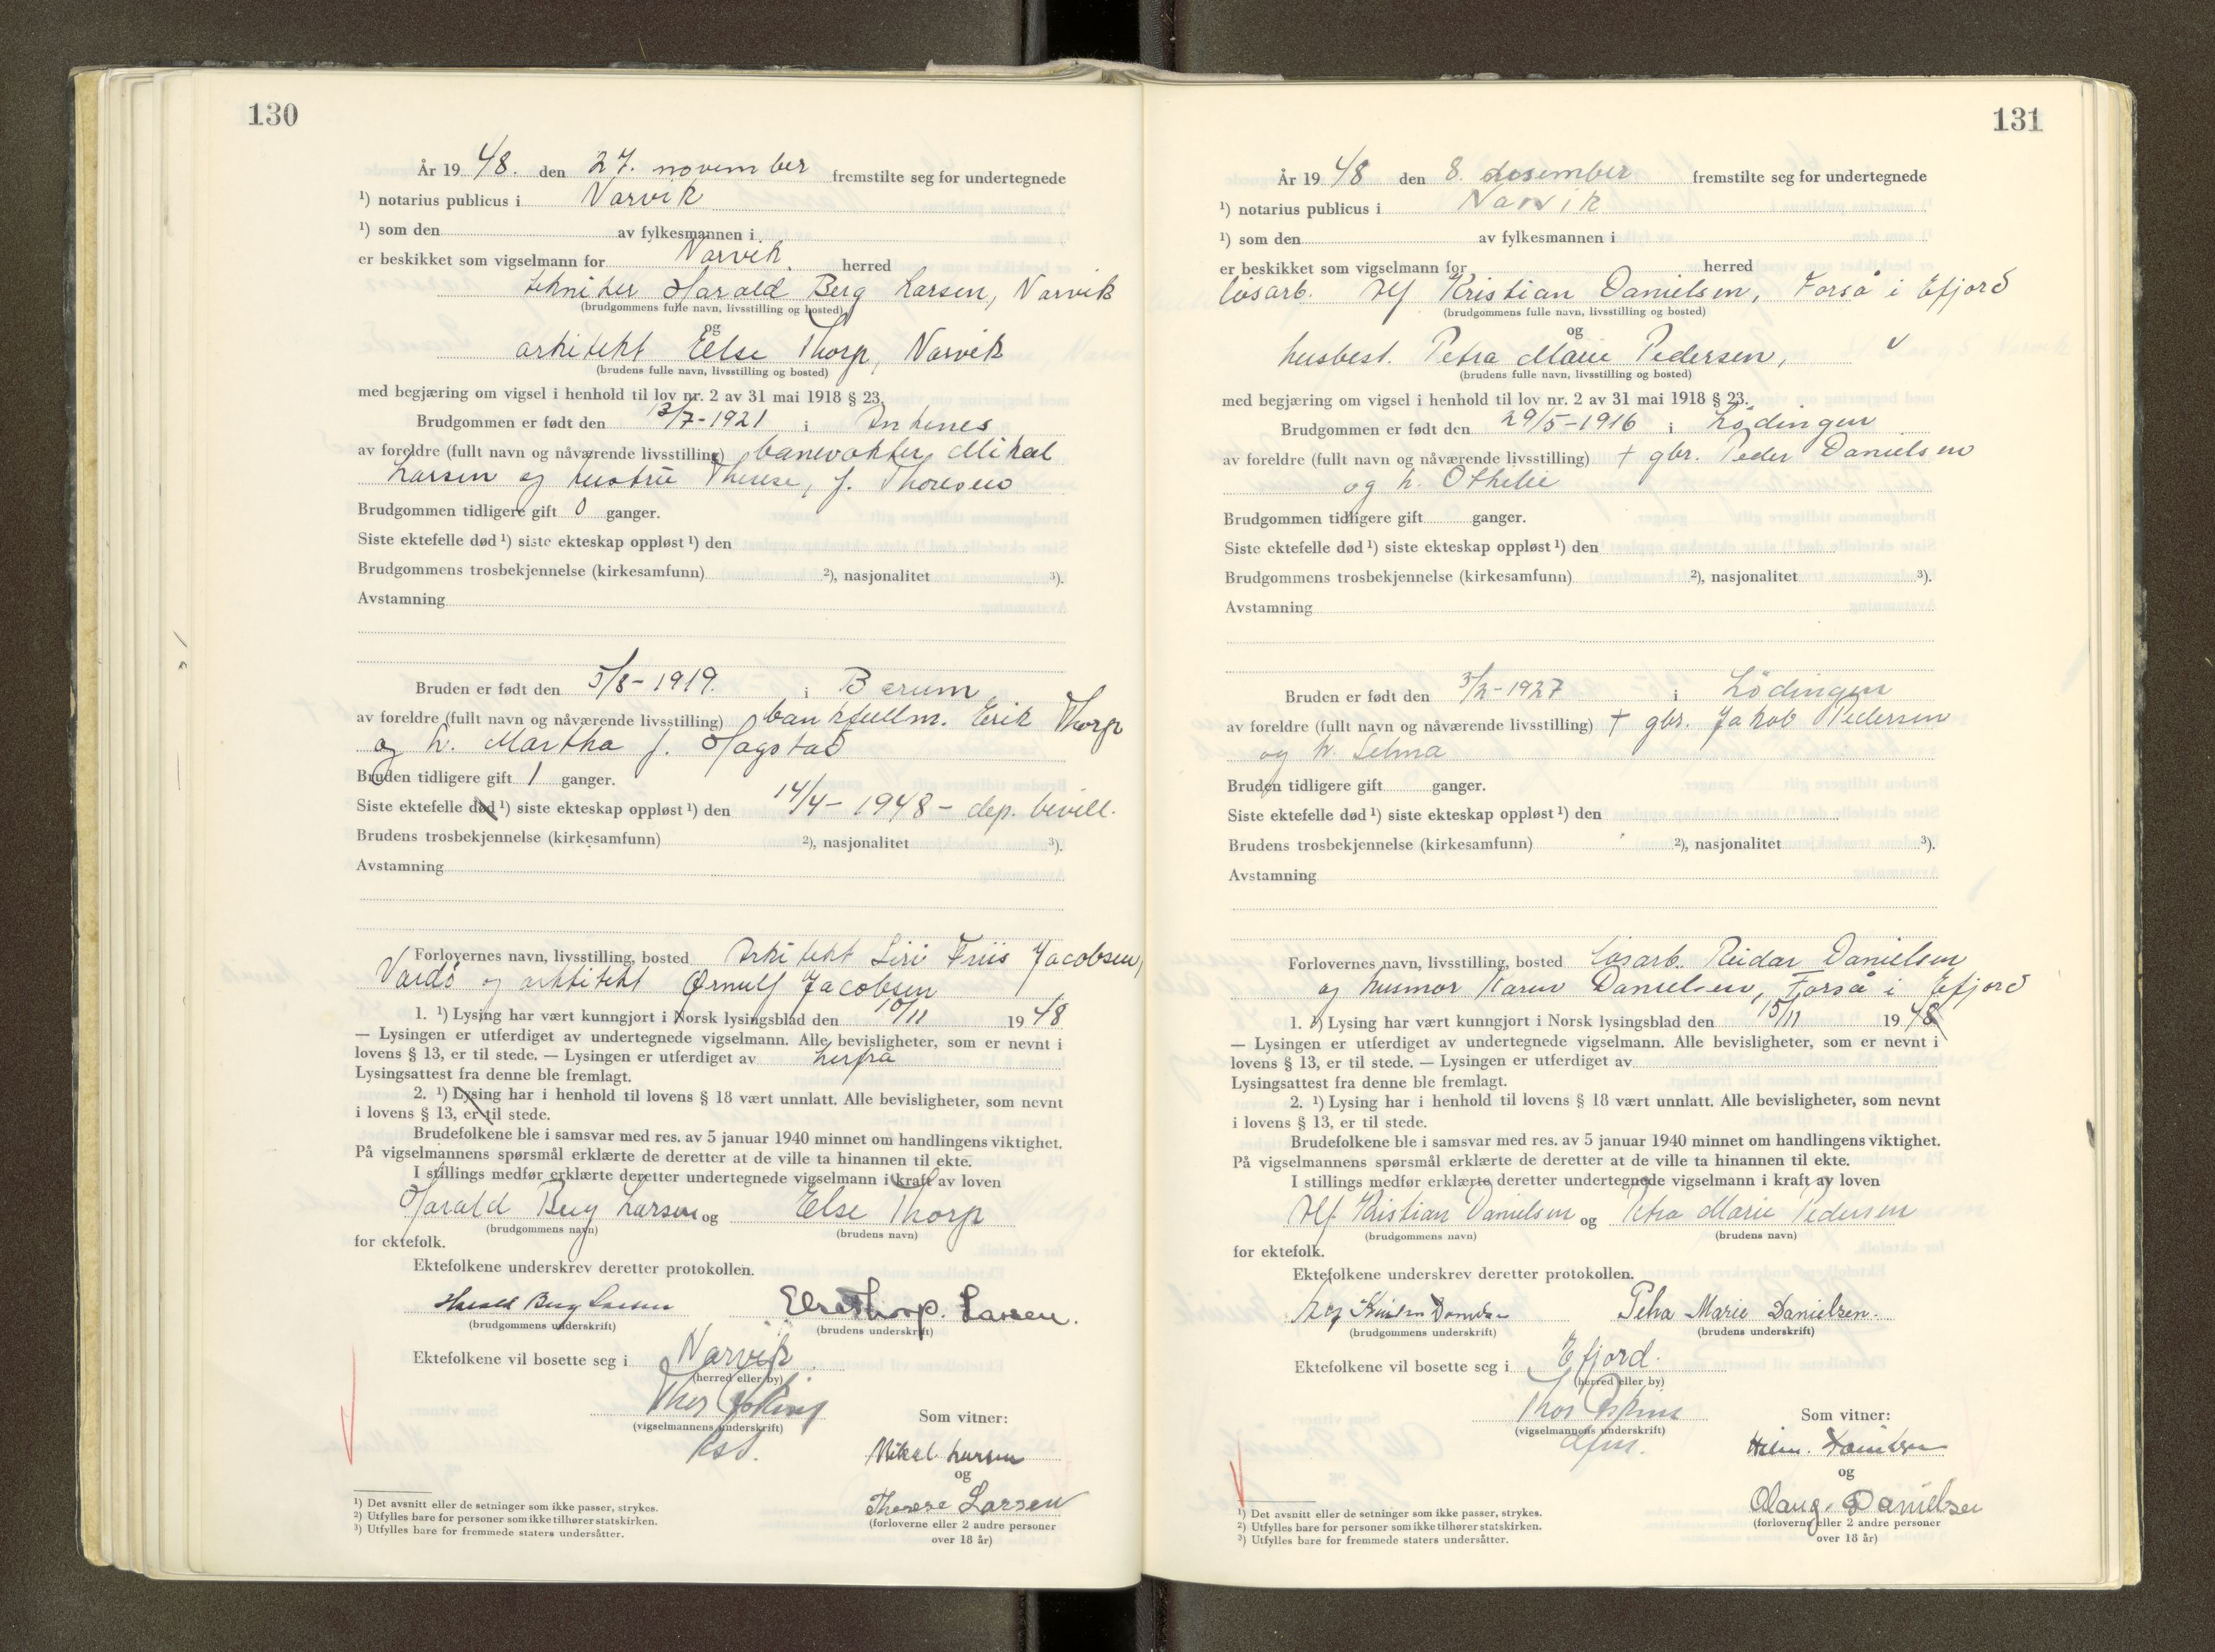 130
År 19 48. den 27. november fremstilte seg for undertegnede
¹) notarius publicus i Narvik
¹) som den av fylkesmannen i
er beskikket som vigselmann for Narvik. herred
tekniker Harald Berg Larsen, Narvik
(brudgommens fulle navn, livsstilling og bosted)
og
arkitekt Else Thorp, Narvik
(brudens fulle navn, livsstilling og bosted)
med begjæring om vigsel i henhold til lov nr. 2 av 31 mai 1918 § 23.
Brudgommen er født den 13/7-1921 i Ankenes
av foreldre (fullt navn og nåværende livsstilling) banevokter Mikal
Larsen og hustru Therese, f. Thoresen
Brudgommen tidligere gift 0 ganger.
Siste ektefelle død ¹) siste ekteskap oppløst ¹) den
Brudgommens trosbekjennelse (kirkesamfunn) ²), nasjonalitet ³).
Avstamning
Bruden er født den 5/8-1919. i Bærum
av foreldre (fullt navn og nåværende livsstilling) bankfullm. Erik Thorp
og h. Martha f. Hagstad
Bruden tidligere gift 1 ganger.
Siste ektefelle død ¹) siste ekteskap oppløst ¹) den 14/4-1948 - dep. bevill.
Brudens trosbekjennelse (kirkesamfunn) ²), nasjonalitet ³).
Avstamning
Forlovernes navn, livsstilling, bosted Arkitekt Siri Friis Jacobsen,
Vardö og arkitekt Ørnulf Jacobsen
1. ¹) Lysing har vært kunngjort i Norsk lysingsblad den 10/11 19 48
— Lysingen er utferdiget av undertegnede vigselmann. Alle bevisligheter, som er nevnt i
lovens § 13, er til stede. — Lysingen er utferdiget av herfra
Lysingsattest fra denne ble fremlagt.
2. ¹) Lysing har i henhold til lovens § 18 vært unnlatt. Alle bevisligheter, som nevnt
i lovens § 13, er til stede.
Brudefolkene ble i samsvar med res. av 5 januar 1940 minnet om handlingens viktighet.
På vigselmannens spørsmål erklærte de deretter at de ville ta hinannen til ekte.
I stillings medfør erklærte deretter undertegnede vigselmann i kraft av loven
Harald Berg Larsen og Else Thorp
(brudgommens navn) (brudens navn)
for ektefolk.
Ektefolkene underskrev deretter protokollen.
Harald Berg Larsen Else Thorp. Larsen.
(brudgommens underskrift) (brudens underskrift)
Ektefolkene vil bosette seg i Narvik
(herred eller by)
Thor
(vigselmannens underskrift)
Som vitner:
Mikal Larsen
og
Therese Larsen
(forloverne eller 2 andre personer
over 18 år)
¹) Det avsnitt eller de setninger som ikke passer, strykes.
²) Utfylles bare for personer som ikke tilhører statskirken.
³) Utfylles bare for fremmede staters undersåtter.
131
År 19 48 den 8. desember fremstilte seg for undertegnede
¹) notarius publicus i Narvik
¹) som den av fylkesmannen i
er beskikket som vigselmann for herred
løsarb. Alf Kristian Danielsen, Forså i Efjord
(brudgommens fulle navn, livsstilling og bosted)
og
husbest. Petra Marie Pedersen, v
(brudens fulle navn, livsstilling og bosted)
med begjæring om vigsel i henhold til lov nr. 2 av 31 mai 1918 § 23.
Brudgommen er født den 29/5-1916 i Lödingen
av foreldre (fullt navn og nåværende livsstilling) † gbr. Peder Danielsen
og h. Othelie
Brudgommen tidligere gift ganger.
Siste ektefelle død ¹) siste ekteskap oppløst ¹) den
Brudgommens trosbekjennelse (kirkesamfunn) ²), nasjonalitet ³).
Avstamning
Bruden er født den 3/2-1927 i Lödingen
av foreldre (fullt navn og nåværende livsstilling) † gbr. Jakob Pedersen
og h. Selma
Bruden tidligere gift ganger.
Siste ektefelle død ¹) siste ekteskap oppløst ¹) den
Brudens trosbekjennelse (kirkesamfunn) ²), nasjonalitet ³).
Avstamning
Forlovernes navn, livsstilling, bosted løsarb. Reidar Danielsen
og husmor Karen Danielsen, Forså i Efjord
1. ¹) Lysing har vært kunngjort i Norsk lysingsblad den 15/11 19 48
— Lysingen er utferdiget av undertegnede vigselmann. Alle bevisligheter, som er nevnt i
lovens § 13, er til stede. — Lysingen er utferdiget av
Lysingsattest fra denne ble fremlagt.
2. ¹) Lysing har i henhold til lovens § 18 vært unnlatt. Alle bevisligheter, som nevnt
i lovens § 13, er til stede.
Brudefolkene ble i samsvar med res. av 5 januar 1940 minnet om handlingens viktighet.
På vigselmannens spørsmål erklærte de deretter at de ville ta hinannen til ekte.
I stillings medfør erklærte deretter undertegnede vigselmann i kraft av loven
Alf Kristian Danielsen og Petra Marie Pedersen
(brudgommens navn) (brudens navn)
for ektefolk.
Ektefolkene underskrev deretter protokollen.
Petra Marie Danielsen.
(brudgommens underskrift) (brudens underskrift)
Ektefolkene vil bosette seg i Efjord.
(herred eller by)
Thor
(vigselmannens underskrift)
Som vitner:
og
Olaug. Danielsen
(forloverne eller 2 andre personer
over 18 år)
¹) Det avsnitt eller de setninger som ikke passer, strykes.
²) Utfylles bare for personer som ikke tilhører statskirken.
³) Utfylles bare for fremmede staters undersåtter.